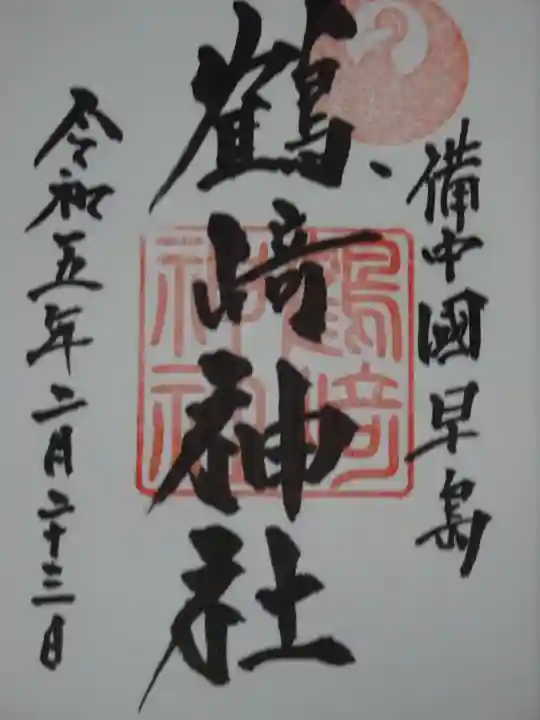 備中國早島
鶴﨑神社
鶴﨑神社
令和五年二月二十三日